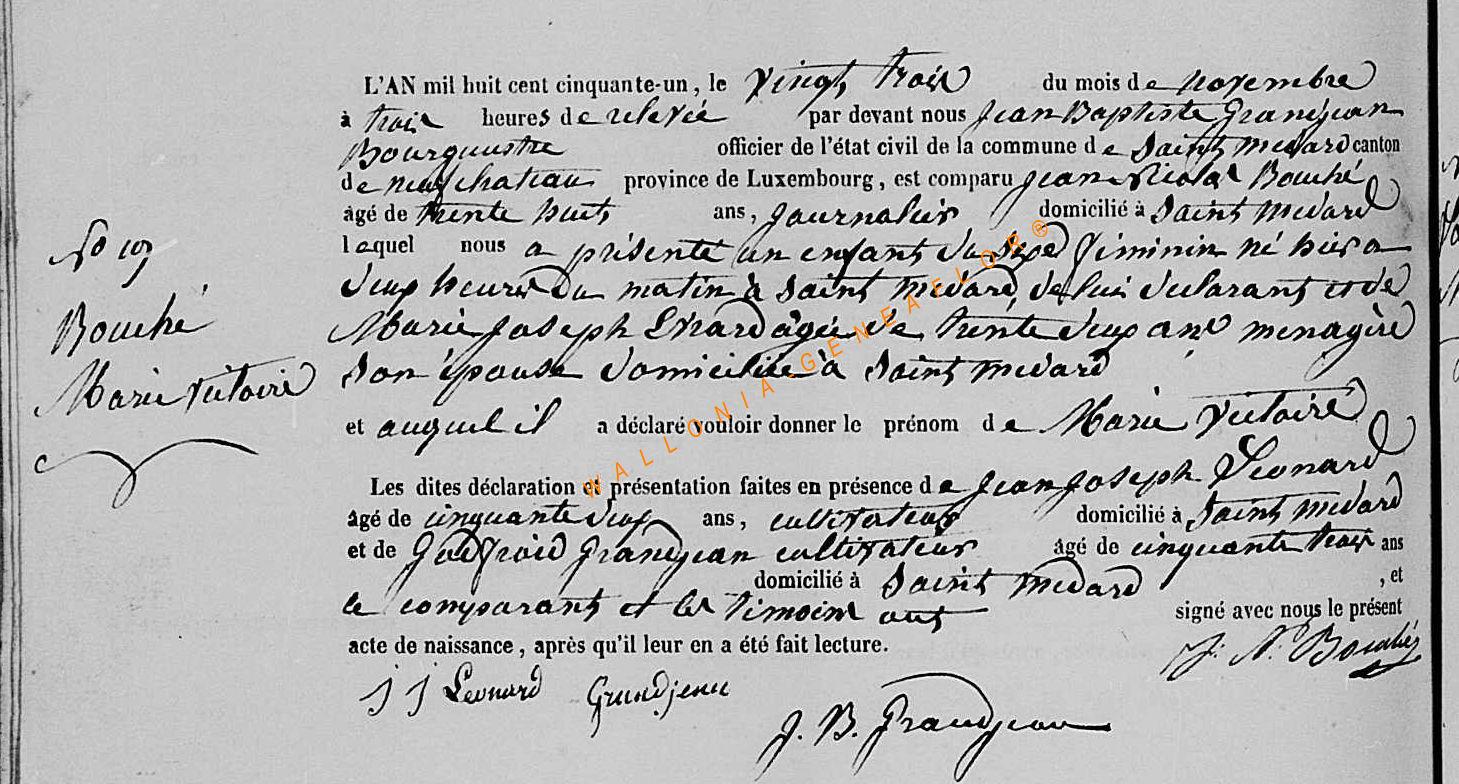 L'AN mil huit cent cinquante-un, le vingt trois du mois de novembre
à trois heures de relevée par devant nous Jean Baptiste Grandjean
Bourguestre officier de l'état civil de la commune de Saint Medard canton
de neufchateau province de Luxembourg, est comparu Jean Nicolas Bouché
âgé de trente huit ans, journalier domicilié à Saint Medard
lequel nous a présenté un enfant du sexe féminin né hier a
deux heures du matin à Saint Medard, de lui déclarant et de
Marie Joseph Evrard âgée de trente deux ans menagère
son épouse domiciliée à Saint Medard
et auquel il a déclaré vouloir donner le prénom de Marie Victoire
Les dites déclaration et présentation faites en présence de Jean Joseph Leonard
âgé de cinquante deux ans, cultivateur domicilié à Saint Medard
et de Godfroid Grandjean cultivateur âgé de cinquante trois ans
domicilié à Saint Medard, et
le comparant et les témoins ont signé avec nous le présent
acte de naissance, après qu'il leur en a été fait lecture.
J. N. Bouché
j j Leonard Grandjean
J. B. Grandjean
No
Bouché
Marie Victoire
WALLONIA-GENEAFLOR®